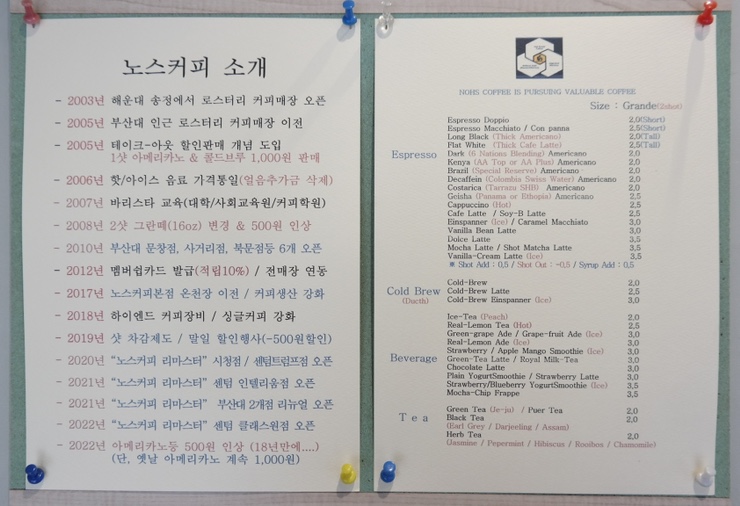 노스커피 소개
- 2003년 해운대 송정에서 로스터리 커피매장 오픈
- 2005년 부산대 인근 로스터리 커피매장 이전
- 2005년 테이크-아웃 할인판매 개념 도입
1샷 아메리카노 & 콜드브루 1,000원 판매
- 2006년 핫/아이스 음료 가격통일(얼음추가금 삭제)
- 2007년 바리스타 교육(대학/사회교육원/커피학원)
- 2008년 2샷 그란떼(16oz) 변경 & 500원 인상
- 2010년 부산대 문창점, 사거리점, 북문점등 6개 오픈
- 2012년 멤버쉽카드 발급(적립10%) / 전매장 연동
- 2017년 노스커피본점 온천장 이전 / 커피생산 강화
- 2018년 하이엔드 커피장비 / 싱글커피 강화
- 2019년 샷 차감제도 / 말일 할인행사(-500원할인)
- 2020년 “노스커피 리마스터” 시청점 / 센텀트럼프점 오픈
- 2021년 “노스커피 리마스터” 센텀 인텔리움점 오픈
- 2021년 “노스커피 리마스터” 부산대 2개점 리뉴얼 오픈
- 2022년 “노스커피 리마스터” 센텀 클래스원점 오픈
- 2022년 아메리카노등 500원 인상 (18년만에....)
(단, 옛날 아메리카노 계속 1,000원)
NOHS COFFEE IS PURSUING VALUABLE COFFEE
Size : Grande(2shot)
Espresso
Espresso Doppio 2,0(Short)
Espresso Macchiato / Con panna 2,5(Short)
Long Black (Thick Americano) 2,0(Tall)
Flat White (Thick Cafe Latte) 2,5(Tall)
Dark (6 Nations Blending) Americano 2,0
Kenya (AA Top or AA Plus) Americano 2,0
Brazil (Special Reserve) Americano 2,0
Decaffein (Colombia Swiss Water) Americano 2,0
Costarica (Tarrazu SHB) Americano 2,0
Geisha (Panama or Ethopia) Americano 2,5
Cappuccino (Hot) 2,5
Cafe Latte / Soy-B Latte 2,5
Einspanner (Ice) / Caramel Macchiato 3,0
Vanilla Bean Latte 3,0
Dolce Latte 3,5
Mocha Latte / Shot Matcha Latte 3,5
Vanilla-Cream Latte (Ice) 3,5
※ Shot Add : 0,5 / Shot Out : -0,5 / Syrup Add : 0,5
Cold Brew
(Ducth)
Cold-Brew 2,0
Cold-Brew Latte 2,5
Cold-Brew Einspanner (Ice) 3,0
Beverage
Ice-Tea (Peach) 2,0
Real-Lemon Tea (Hot) 2,5
Green-grape Ade / Grape-fruit Ade (Ice) 3,0
Real-Lemon Ade (Ice) 3,0
Strawberry / Apple Mango Smoothie (Ice) 3,0
Green-Tea Latte / Royal Milk-Tea 3,0
Chocolate Latte 3,0
Plain YogurtSmoothie / Strawberry Latte 3,0
Strawberry/Blueberry YogurtSmoothie (Ice) 3,5
Mocha-Chip Frappe 3,5
Tea
Green Tea (Je-ju) / Puer Tea 2,0
Black Tea 2,0
(Earl Grey / Darjeeling / Assam)
Herb Tea 2,0
(Jasmine / Pepermint / Hibiscus / Rooibos / Chamomile)